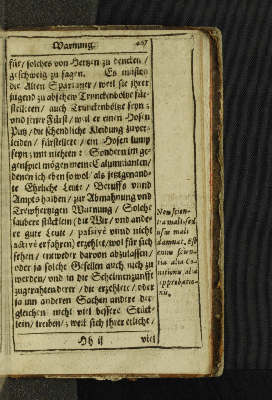 Warnung. 467
für / solches von Hertzen zu dencken /
geschweig zu sagen. Es müsten
die Alten Spartaner / weil sie ihrer
jugend zu abschew Trunckenbolde für-
stelleten / auch Trunckenböltz seyn;
vnd jener Fürst / weil er einen Hosen
Putz / die schendliche Kleidung zuver-
leiden / fürstellete / ein Hosen lump
seyn; mit nichten: Sondern im ge-
genspiel mögen meine Calumnianten /
denen ich eben sowol als jetzgenand-
te Ehrliche Leute / Beruffs vnnd
Ampts halben / zur Abmahnung vnd
Trewhertzigen Warnung / Solche
saubere stücklein (die Wir / vnd ande-
re gute Leute / passivè vnnd nicht
activè erfahren) erzehlet / wol für sich
sehen / entweder darvon abzulassen /
oder ja solche Gesellen auch nich zu
werden / vnd in die Schelmenzunfft
zugerahten derer / die erzehlete / oder
ja inn anderen Sachen andere der-
gleichen nicht viel bessere Stück-
lein / treiben / ; weil sich ihrer etliche /
Hh ij viel
Non scien-
tia mali, sed
usus mali
damnat. Est
enim scien-
tia alia Co-
nitionis alia
approbatio-
nis.